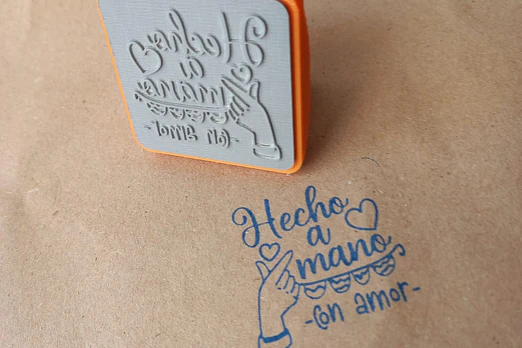 Hecho
a
mano
-Con amor-
Hecho
a
mano
-Con amor-